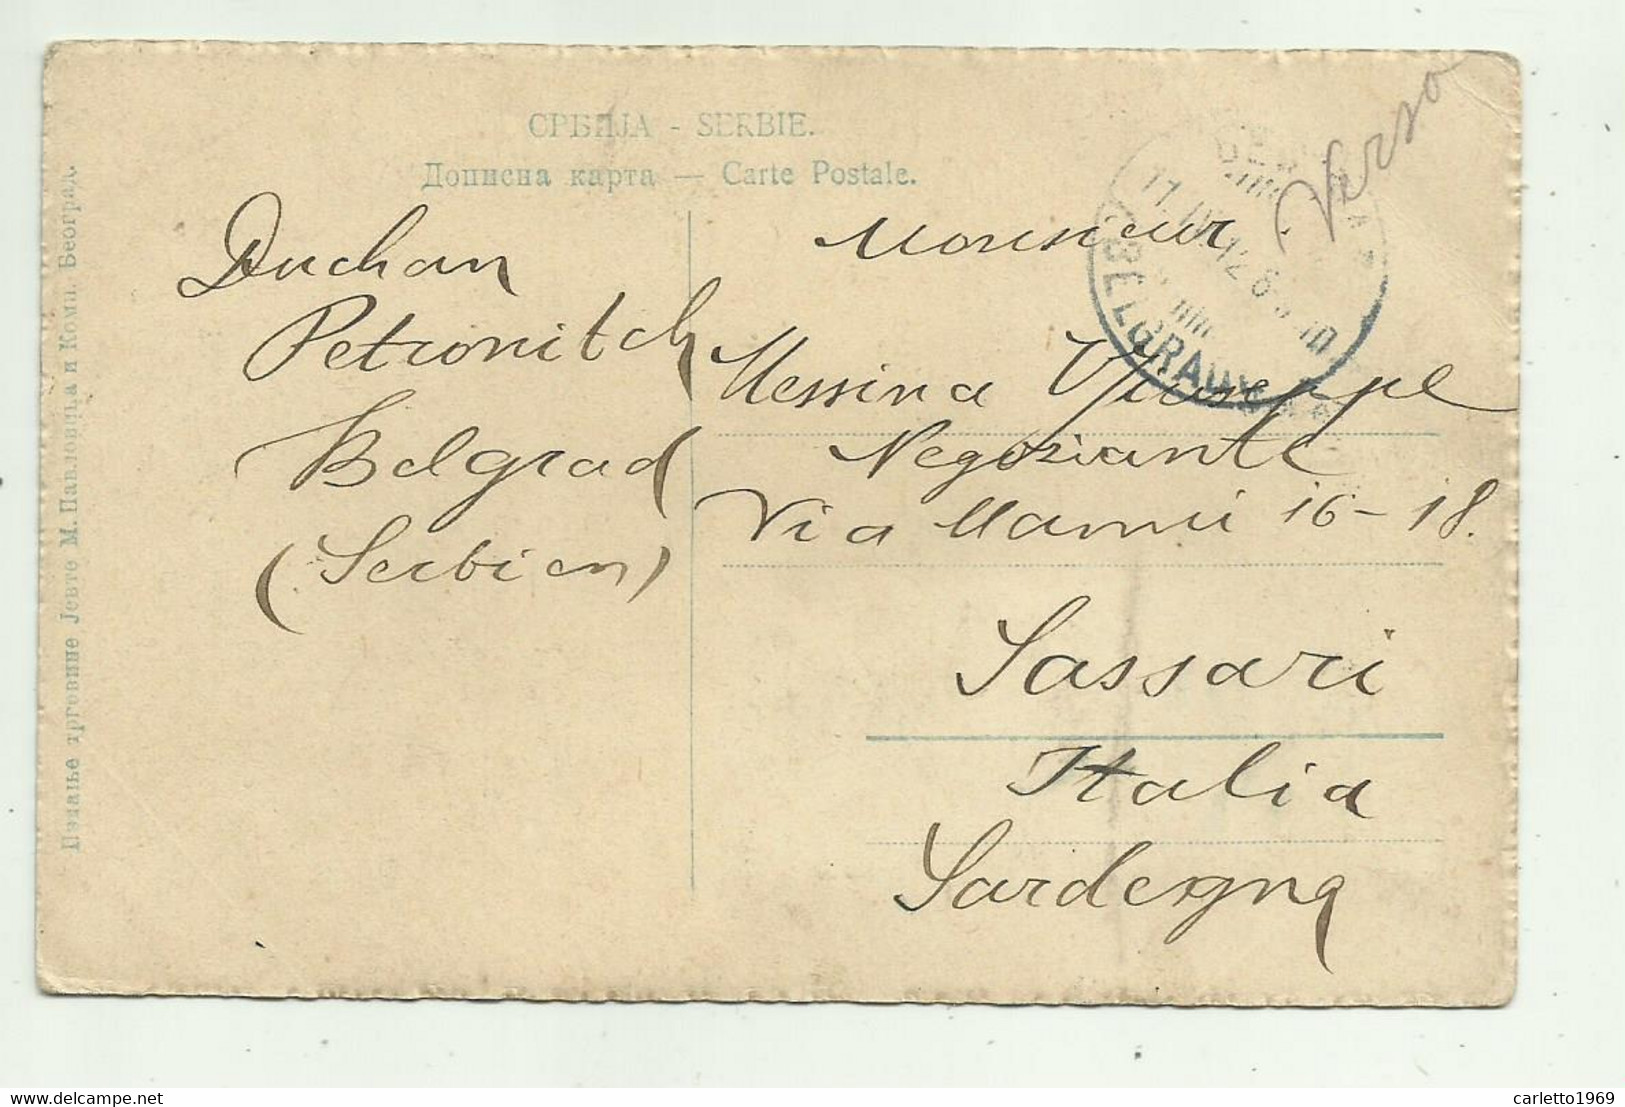 СРБИЈА - SERBIE.
Дописна карта — Carte Postale.
Издање трговине Јевте М. Павловића и Комп. Београд.
Verso
Duchan
Petronitch
Belgrad
(Serbien)
Monsieur
Messina Giuseppe
Negoziante
Via Mannu 16-18.
Sassari
Italia
Sardegna
BELGRADE
www.delcampe.net
carletto1969